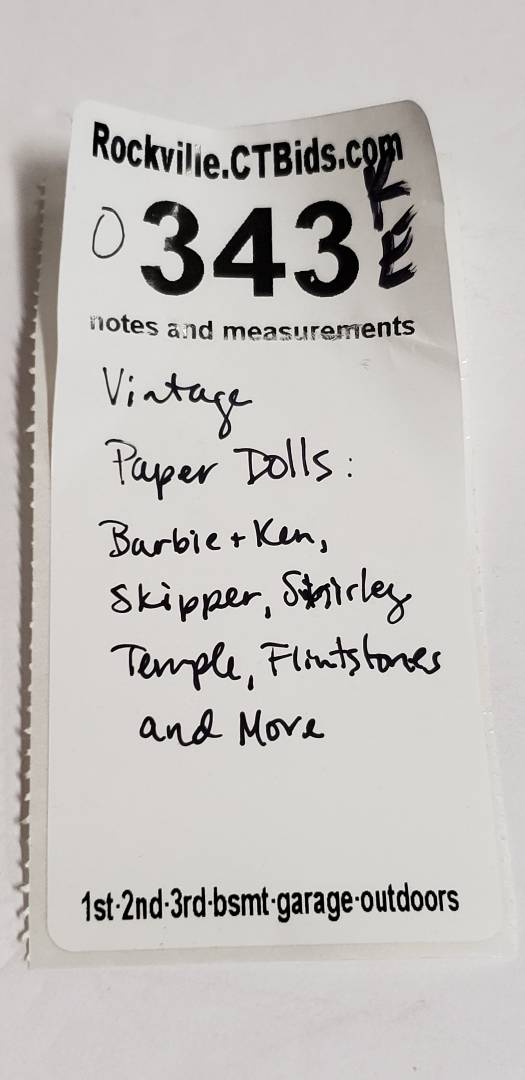 Rockville.CTBids.com
0 343 KE
notes and measurements
Vintage
Paper Dolls:
Barbie + Ken,
Skipper, Shirley
Temple, Flintstones
and More
1st·2nd·3rd·bsmt·garage·outdoors